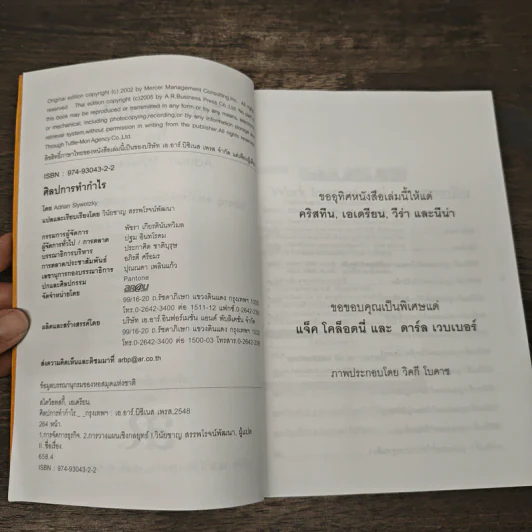 Original edition copyright (c) 2002 by Mercer Management Consulting,Inc. All
reserved. The edition copyright (c)2005 by A.R.Business Press Co.,Ltd. No
this book may be reproduced or transmitted in any form or by any means,
or mechanical, including photocopying,recording,or by any information
retrieval system,without permission in writing from the publisher.All rights
Through Tuttle-Mori Agency Co.,Ltd.
ลิขสิทธิ์ภาษาไทยของหนังสือเล่มนี้เป็นของบริษัท เอ.อาร์.บิซิเนส เพรส จำกัด
ISBN : 974-93043-2-2
ศิลปการทำกำไร
โดย Adrian Slywotzky
แปลและเรียบเรียงโดย วินัยชาญ สรรพโรจน์พัฒนา
กรรมการผู้จัดการ พัชรา เกียรตินันทวิมล
ผู้จัดการทั่วไป / การตลาด ปฐม อินทโรดม
บรรณาธิการบริหาร ประภาคิต ชาติบุรุษ
การตลาด/ประชาสัมพันธ์ อภิรดี ศรีอมร
เลขานุการกองบรรณาธิการ ปุณณดา เพลินแก้ว
ปกและศิลปกรรม Pantone
จัดจำหน่ายโดย
99/16-20 ถ.รัชดาภิเษก แขวงดินแดง กรุงเทพฯ
โทร.0-2642-3400 ต่อ 1511-12 แฟกซ์
ผลิตและสร้างสรรค์โดย บริษัท เออาร์ อินฟอร์เมชั่น แอนด์ พับลิเคชั่น จำกัด
99/16-20 ถ.รัชดาภิเษก แขวงดินแดง กรุงเทพฯ
โทร.0-2642-3400 ต่อ 1500-03 โทรสาร
ส่งความคิดเห็นและติชมมาที่ arbp@ar.co.th
ข้อมูลบรรณานุกรมของหอสมุดแห่งชาติ
สไลวอตสกี้, เอเดรียน.
ศิลปการทำกำไร._ _กรุงเทพฯ : เอ.อาร์.บิซิเนส เพรส,2548.
264 หน้า.
1.การจัดการธุรกิจ. 2.การวางแผนเชิงกลยุทธ์ I.วินัยชาญ สรรพโรจน์พัฒนา, ผู้แปล
II. ชื่อเรื่อง.
658.4
ISBN : 974-93043-2-2
ขออุทิศหนังสือเล่มนี้ให้แด่
คริสทีน, เอเดรียน, วีร่า และนีน่า
ขอขอบคุณเป็นพิเศษแด่
แจ็ค โคล็อดนี่ และ คาร์ล เวบเบอร์
ภาพประกอบโดย วิคกี โบดาช